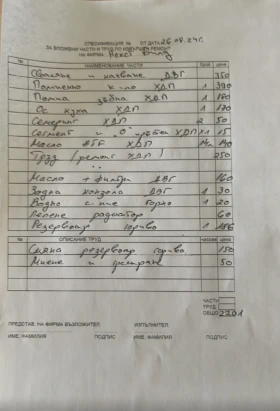 СПЕЦИФИКАЦИЯ № ОТ ДАТА 26.08.24г.
ЗА ВЛОЖЕНИ ЧАСТИ И ТРУД ПО РЕМОНТ
НА ФИРМА
№ НАИМЕНОВАНИЕ ЧАСТИ броя цена
Сваляне и качване ДВГ 350
к-ло ХДП 1 390
Помпа зъбна ХДП 1 180
Ос куха ХДП 1 170
Семеринг ХДП 2 50
Сегмент и "О" ХДП 15
Масло ATF ХДП 140
Труд (ремонт ХДП) 250
Масло + филтри ДВГ 160
Задна конзола ДВГ 1 30
Водно горно 1 20
радиатор 60
Резервоар гориво 1 186
№ ОПИСАНИЕ ТРУД часове цена
Смяна резервоар гориво 150
Миене и 50
ЧАСТИ
ТРУД
ОБЩО 2201
ПРЕДСТАВ. НА ФИРМА ВЪЗЛОЖИТЕЛ ИЗПЪЛНИТЕЛ
ИМЕ, ФАМИЛИЯ ПОДПИС ИМЕ, ФАМИЛИЯ ПОДПИС